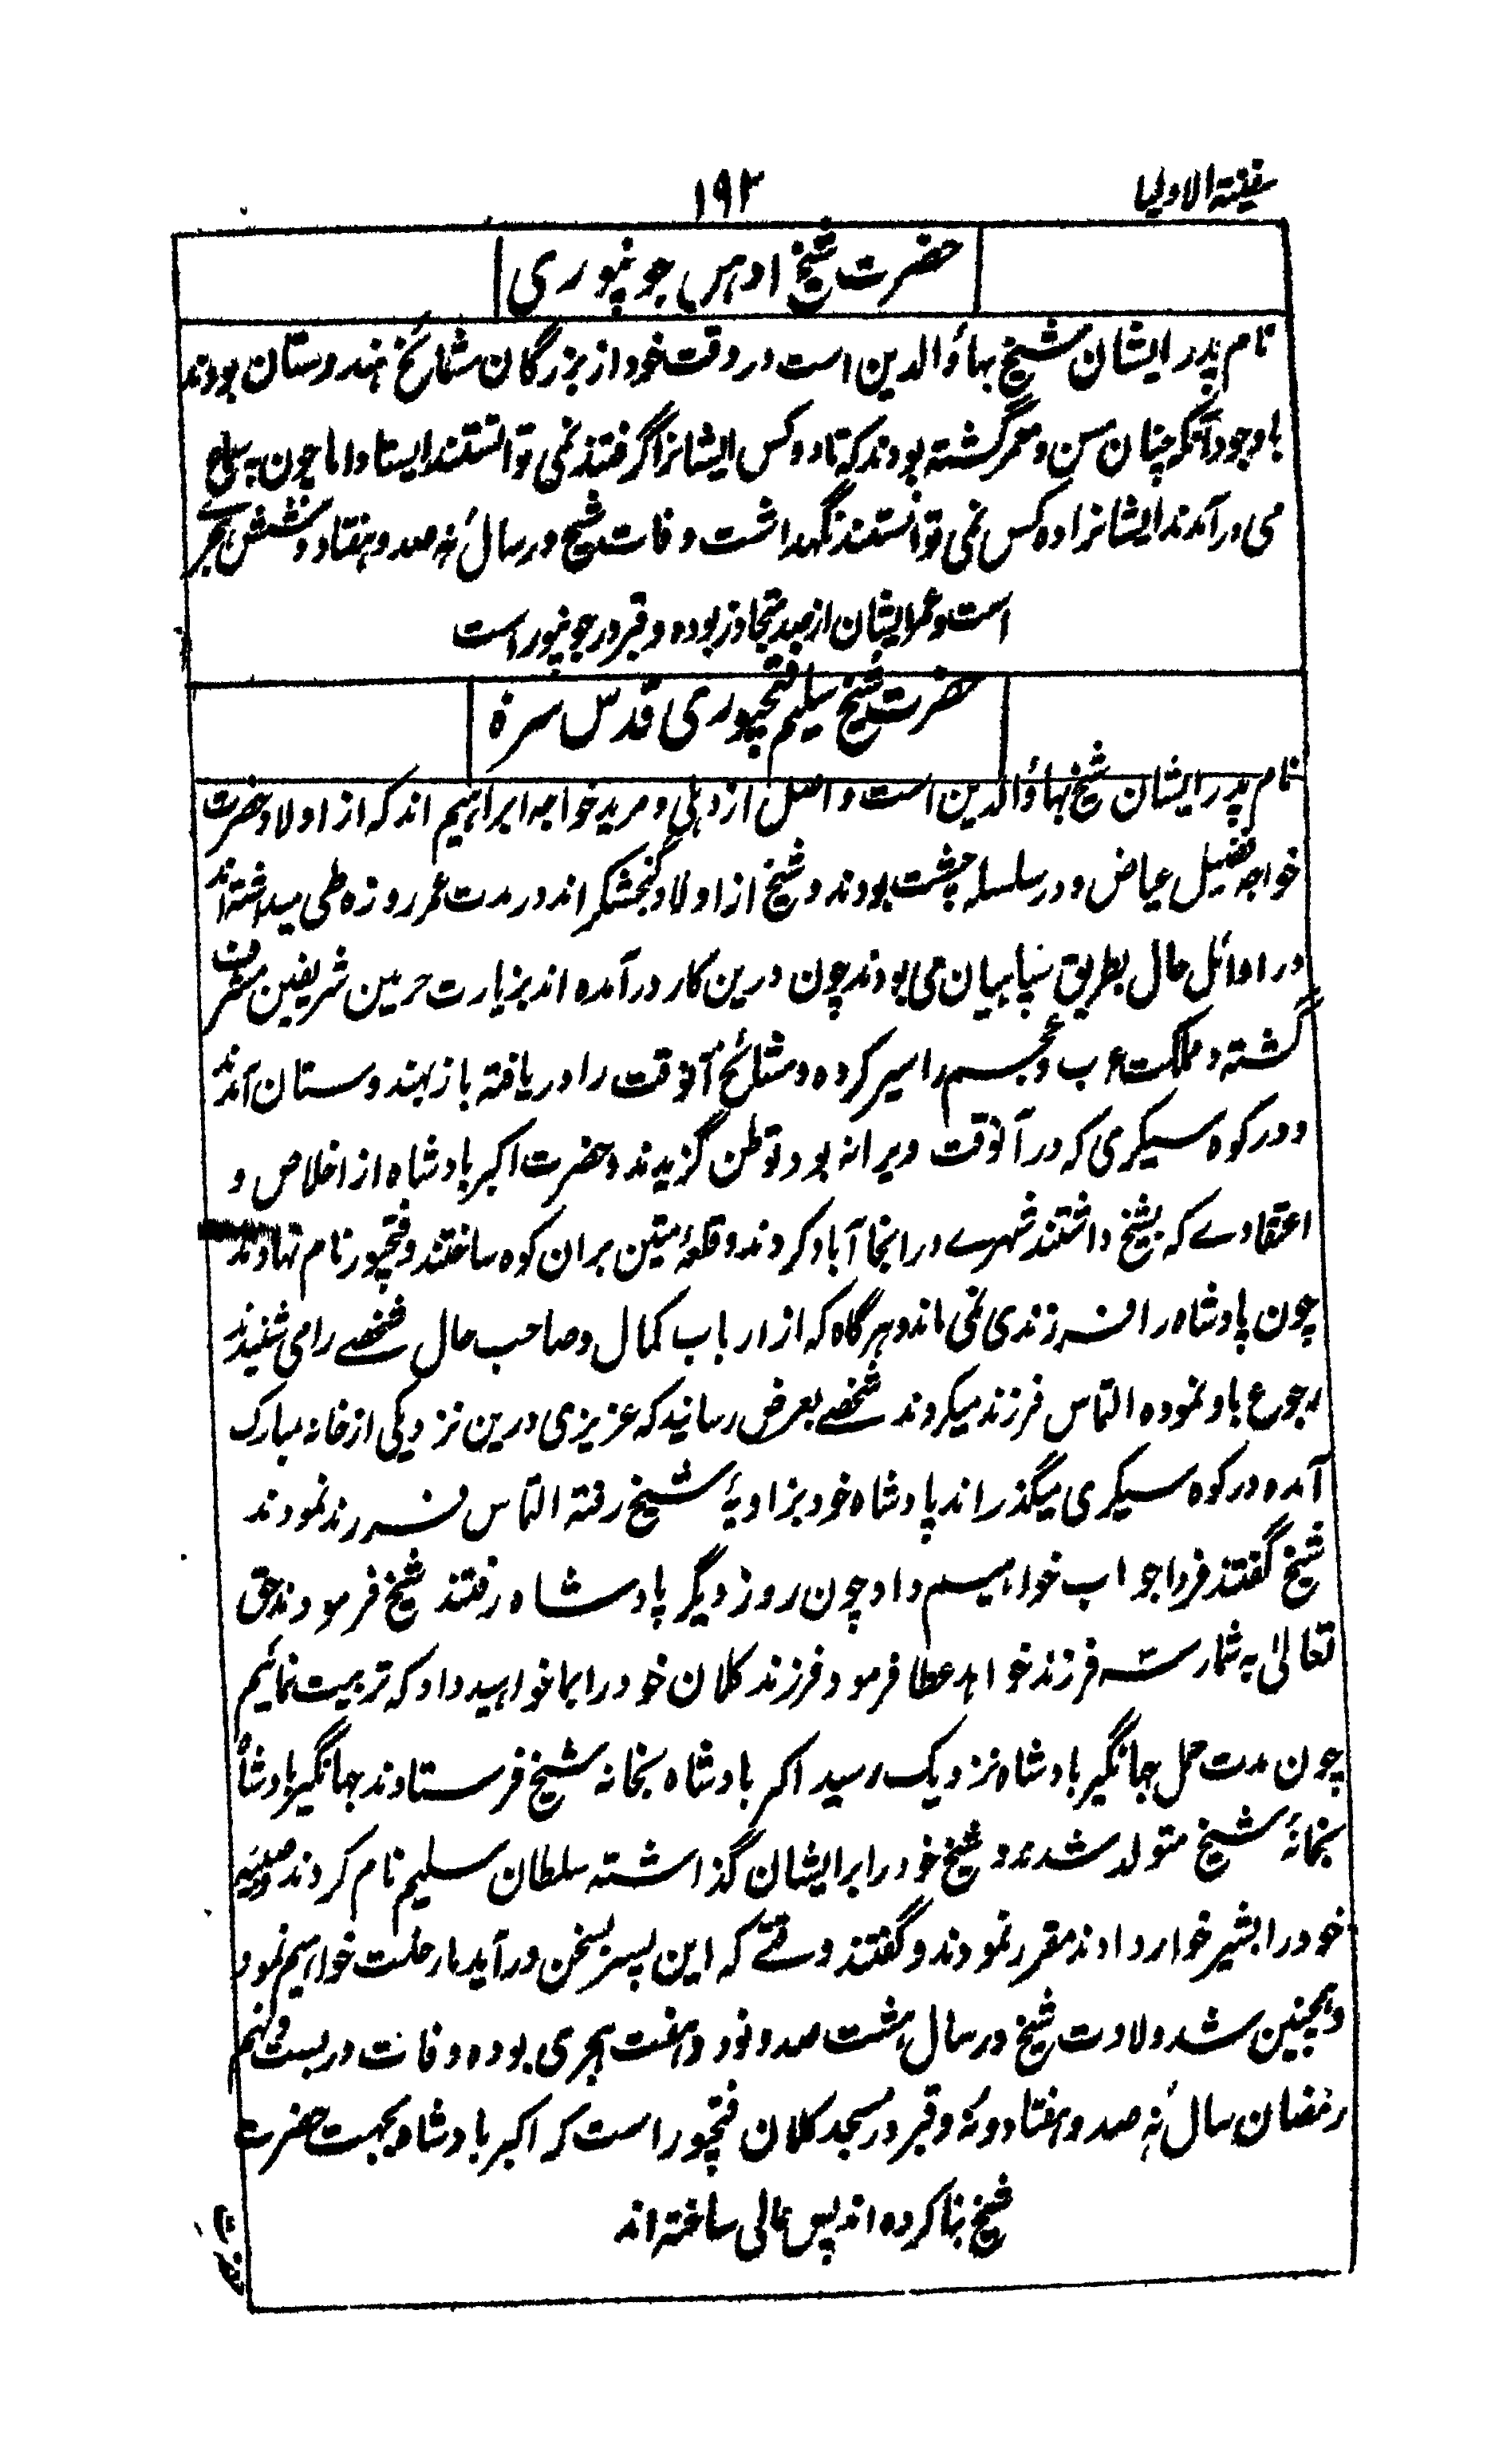 سفینة الاولیا
۱۹۲
حضرت شیخ ادهن جونپوری
نام پدر ایشان شیخ بهاؤالدین است در وقت خود از بزرگان مشائخ هندوستان بودند
باوجود آنکه چنان مسن و معمر گشته بودند که تا دو کس ایشانرا گرفتند نمی توانستند ایستاد اما چون به سماع
می درآمدند ایشانرا ده کس نمی توانستند نگهداشت وفات شیخ در سال نه صد و هفتاد و شش هجرے
است و عمر ایشان از صد متجاوز بوده و قبر در جونپور است
حضرت شیخ سلیم فتحپوری قدس سره
نام پدر ایشان شیخ بهاؤالدین است و اصل از دهلی و مرید خواجه ابراهیم اند که از اولاد حضرت
خواجه فضیل عیاض و در سلسله چشت بودند و شیخ از اولاد گنجشکر اند در مدت عمر روزه طی میداشته اند
در اوائل حال بطریق سپاهیان می بودند چون درین کار درآمده اند بزیارت حرمین شریفین مشرف
گشته و مملکت عرب و عجم را سیر کرده و مشائخ آنوقت را دریافته باز بهندوستان آمدند
و در کوه سیکری که در آنوقت ویرانه بود توطن گزیدند و حضرت اکبر پادشاه از اخلاص و
اعتقادے که بشیخ داشتند شهرے در انجا آباد کردند و قلعهٔ متین بران کوه ساختند و فتحپور نام نهادند
چون پادشاه را فرزندی نمی ماند و هرگاه که از ارباب کمال و صاحب حال شخصے را می شنیدند
رجوع باو نموده التماس فرزند میکردند شخصے بعرض رسانید که عزیزی درین نزدیکی از خانه مبارک
آمده در کوه سیکری میگذراند پادشاه خود بزاویهٔ شیخ رفته التماس فرزند نمودند
شیخ گفتند فردا جواب خواهیم داد چون روز دیگر پادشاه رفتند شیخ فرمودند حق
تعالیٰ به شما رسته فرزند خواهد عطا فرمود فرزند کلان خود را بما خواهید داد که تربیت نمائیم
چون مدت حمل جهانگیر بادشاه نزدیک رسید اکبر بادشاه بخانه شیخ فرستادند جهانگیر بادشاه
بخانهٔ شیخ متولد شدند و شیخ خود را بر ایشان گذاشته سلطان سلیم نام کردند و صبیه
خود را بشیر خوار دادند مقرر نمودند و گفتند وقتے که این پسر بسخن درآید ما رحلت خواهیم نمود
و همچنین شد ولادت شیخ در سال هشت صد و نود و هفت هجری بوده وفات در بست و نهم
رمضان سال نه صد و هفتاد و نه و قبر در مسجد کلان فتحپور است که اکبر بادشاه بجهت حضرت
شیخ بنا کرده اند پس عالی ساخته اند